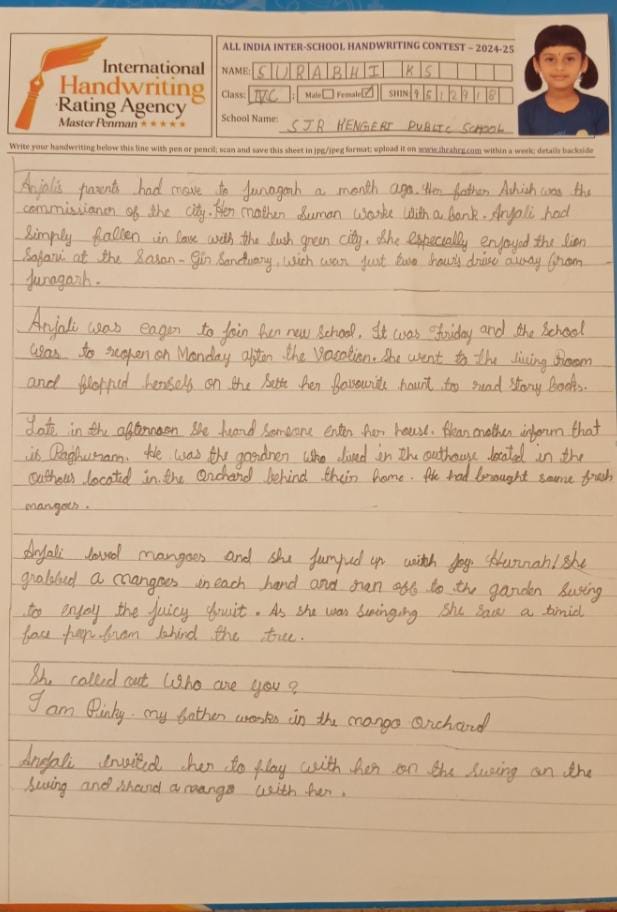 International
Handwriting
Rating Agency
Master Penman ★★★★★
ALL INDIA INTER-SCHOOL HANDWRITING CONTEST – 2024-25
NAME: SURABHI KS
Class: IV C Male Female ☑ SHIN 9512918
School Name: SJR KENGERI PUBLIC SCHOOL
Write your handwriting below this line with pen or pencil; scan and save this sheet in jpg/jpeg format; upload it on www.ihrahrg.com within a week; details backside
Anjalis parents had move to Junagarh a month ago. Her father Ashish was the
commissioner of the city. Her mother Suman works with a bank. Anjali had
simply fallen in love with the lush green city. She especially enjoyed the lion
Safari at the Sasan-Gir Sanctuary, wich was just two hours drive away from
Junagarh.
Anjali was eager to join her new School. It was Friday and the School
was to reopen on Monday after the Vacation. She went to the living Room
and flopped herself on the Sette her favourite haunt to read Story Books.
Late in the afternoon She heard Someone enter her house. Her mother inform that
is Raghuram. He was the gardner who lived in the outhouse located in the
Outhous located in the Orchard behind their home. He had brought some fresh
mangoes.
Anjali loved mangoes and she jumped up witch joy. Hurrah! she
grabbed a mangoes in each hand and ran off to the garden Swing
to enjoy the juicy fruit. As she was Swinging She saw a timid
face peep from behind the tree.
She called out Who are you?
I am Pinky. my father works in the mango Orchard
Anjali invited her to play with her on the Swing on the
Swing and shard a mango with her.